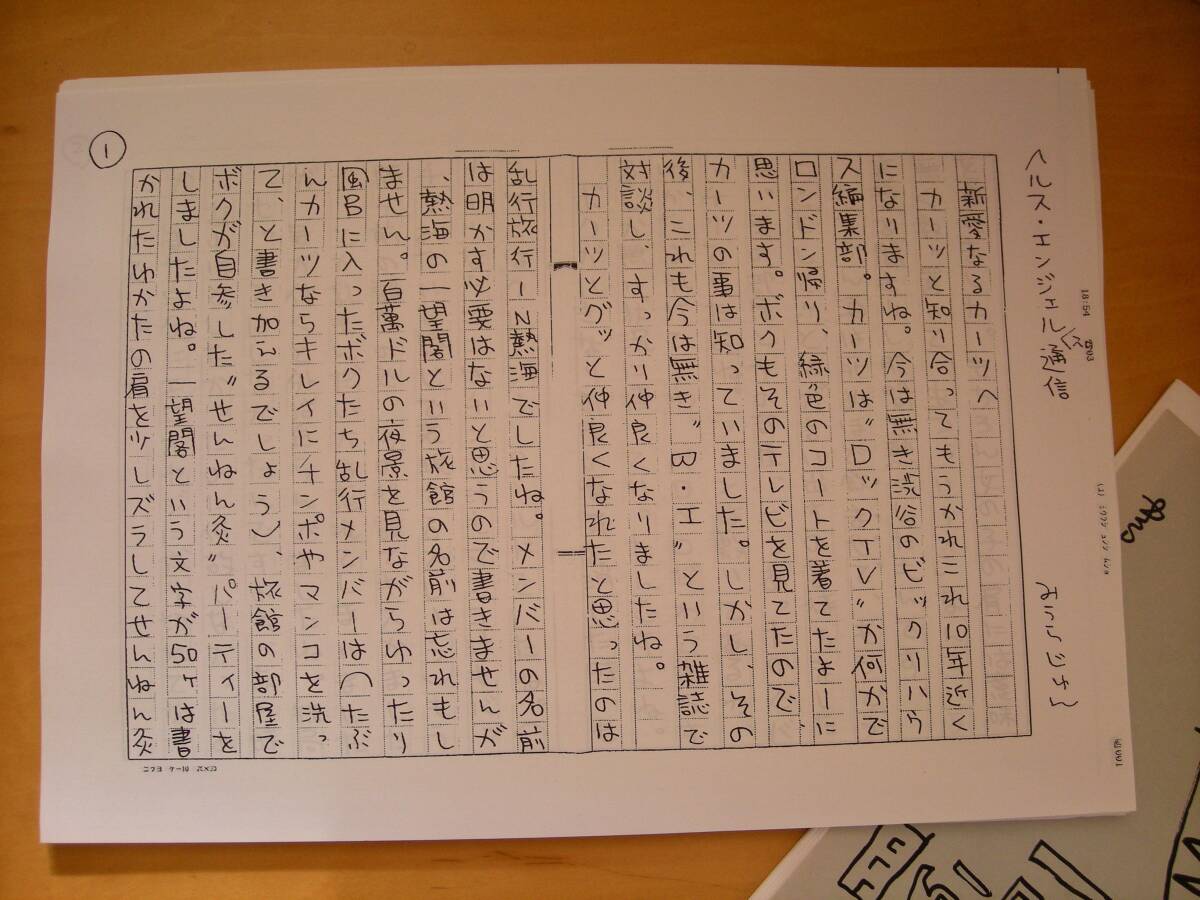 ヘルス・エンジェルス通信
みうらじゅん
新愛なるカーツへ
カーツと知り合ってもうかれこれ10年近く
になりますね。今は無き渋谷のビックリハウ
ス編集部。カーツは〝ロックTV〟か何かで
ロンドン帰り、緑色のコートを着てたよーに
思います。ボクもそのテレビを見てたので、
カーツの事は知っていました。しかし、その
後、これも今は無き〝ロ・エ〟という雑誌で
対談し、すっかり仲良くなりましたね。
カーツとグッと仲良くなれたと思ったのは
乱行旅行ーN熱海でしたね。メンバーの名前
は明かす必要はないと思うので書きませんが
、熱海の一望閣という旅館の名前は忘れもし
ません。百萬ドルの夜景を見ながらゆったり
風呂に入ったボクたち乱行メンバーは(たぶ
んカーツならキレイにチンポやマンコを洗っ
て、と書き加えるでしょう)、旅館の部屋で
ボクが自参した〝せんねん灸〟パーティーを
しましたよね。一望閣という文字が50ヶは書
かれたゆかたの肩を少しズラしてせんねん灸
①
18:54
コクヨ ケー10 20×20